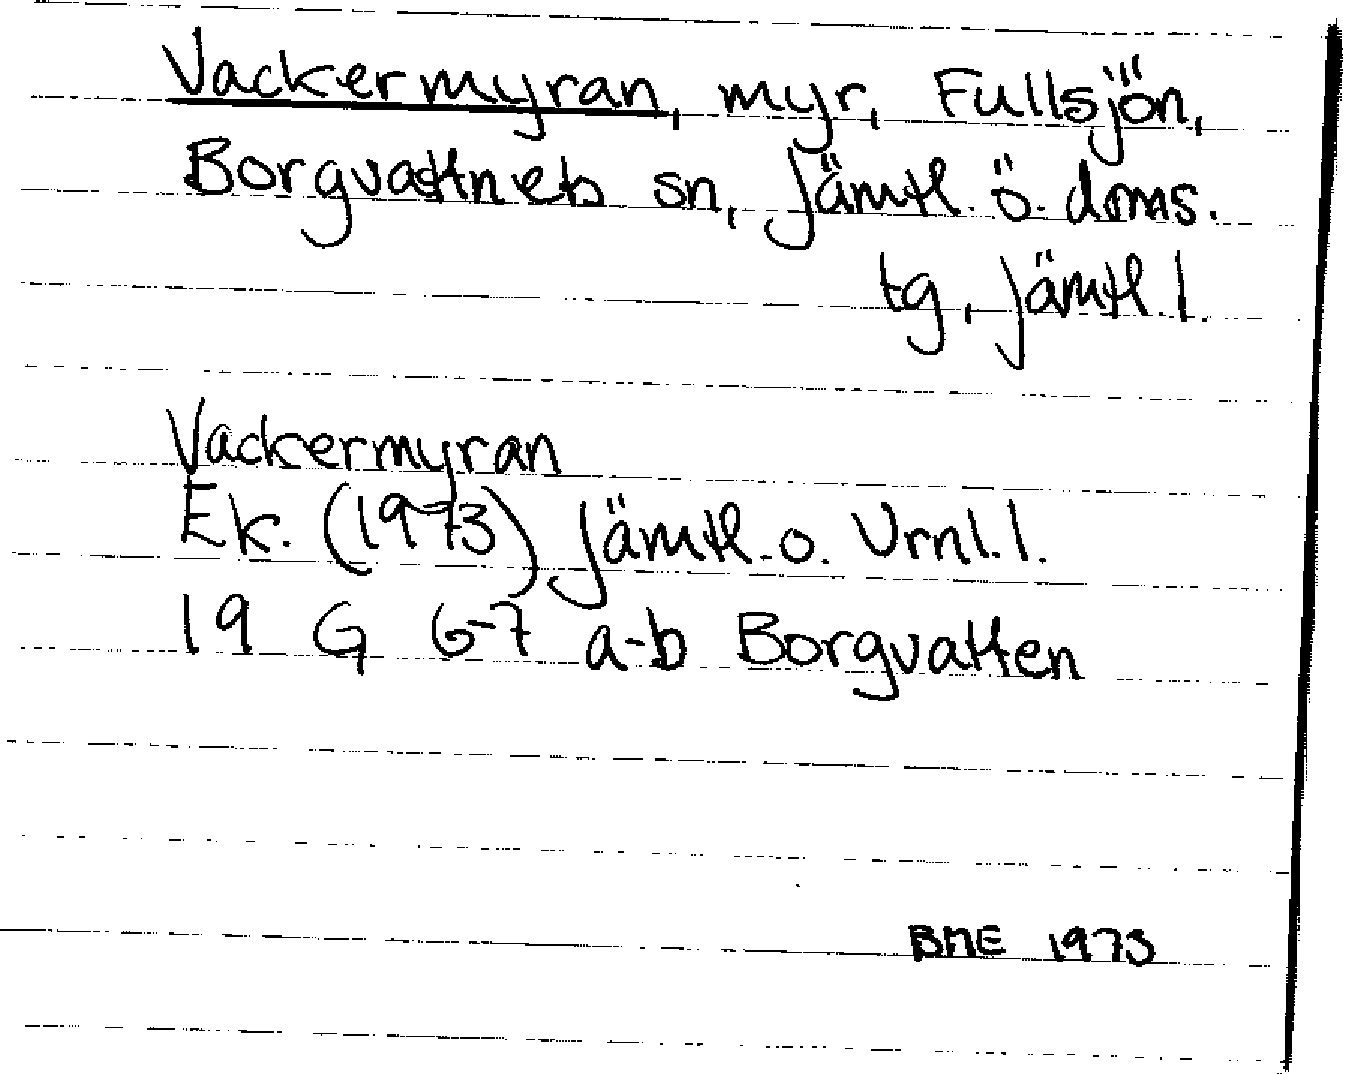 Vackermyran, myr, Fullsjön,
Borgvattnets sn, Jämtl. ö. doms.
tg, Jämtl. l.
Vackermyran
Ek. (1973) Jämtl. o. Vrnl. l.
19 G 6-7 a-b Borgvatten
BME 1975